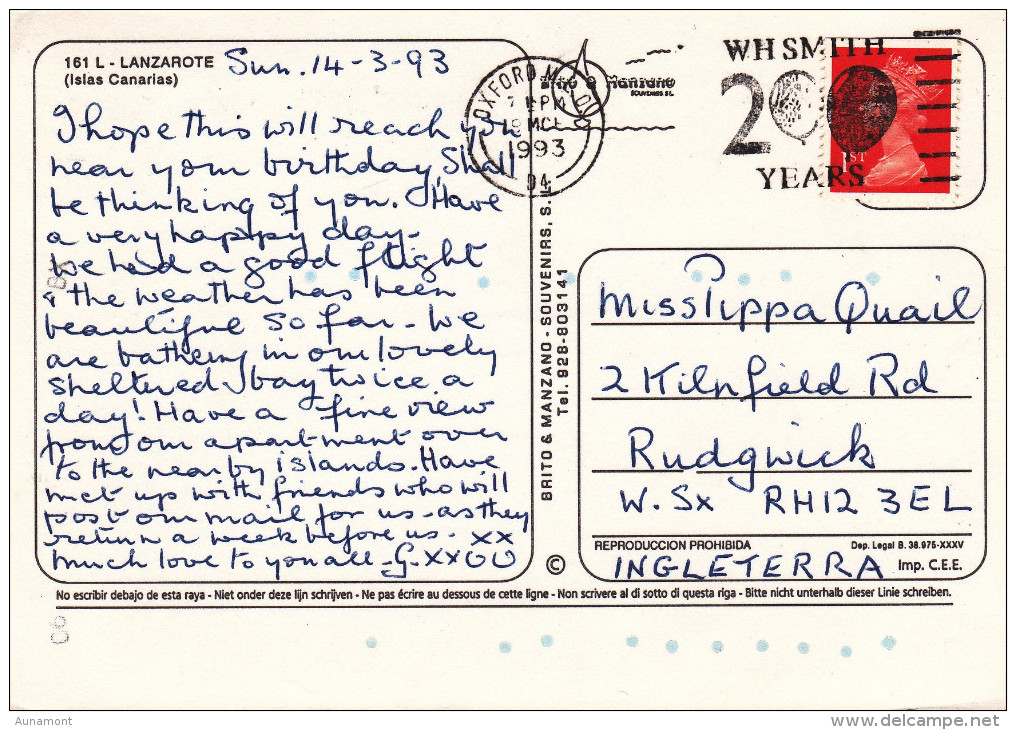 161 L - LANZAROTE
(Islas Canarias)
Sun. 14-3-93
I hope this will reach you
near your birthday, Shall
be thinking of you. Have
a very happy day -
We had a good flight
& the weather has been
beautiful so far - We
are bathing in our lovely
sheltered bay twice a
day! Have a fine view
from our apartment over
to the nearby islands. Have
met up with friends who will
post our mail for us - as they
return a week before us - xx
Much love to you all - G. XXOO
OXFORD
PM
1993
Manzano
SOUVENIRS S.L.
WH SMITH
200
YEARS
1ST
BRITO & MANZANO - SOUVENIRS, S.L.
Tel. 928-803141
©
Miss Pippa Quail
2 Kilnfield Rd
Rudgwick
W. Sx RH12 3EL
REPRODUCCION PROHIBIDA
Dep. Legal B. 38.975-XXXV
INGLETERRA
Imp. C.E.E.
No escribir debajo de esta raya - Niet onder deze lijn schrijven - Ne pas écrire au dessous de cette ligne - Non scrivere al di sotto di questa riga - Bitte nicht unterhalb dieser Linie schreiben.
Aunamont
delcampe.net